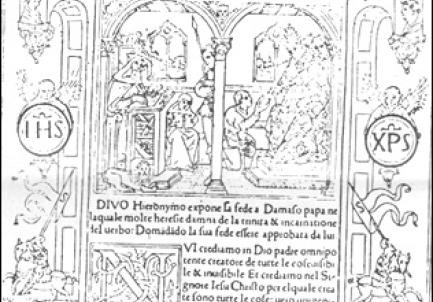 IHS
XPS
DIVO Hieronymo expone la fede a Damaso papa ne
la quale molte heresie damna de la trinita & incarnatione
del uerbo: Domādādo la sua fede essere approbata da lui
N
UI crediamo in Dio padre omnipo
tente creatore de tutte le cose uisibi
le & inuisibile Et crediamo nel Si
gnore Iesu Christo per el quale crea
te sono tutte le cose: